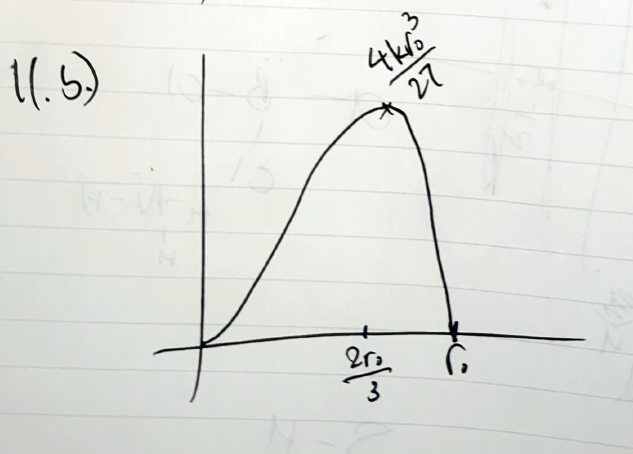 1(.b.)
4kr₀³/27
2r₀/3
r₀